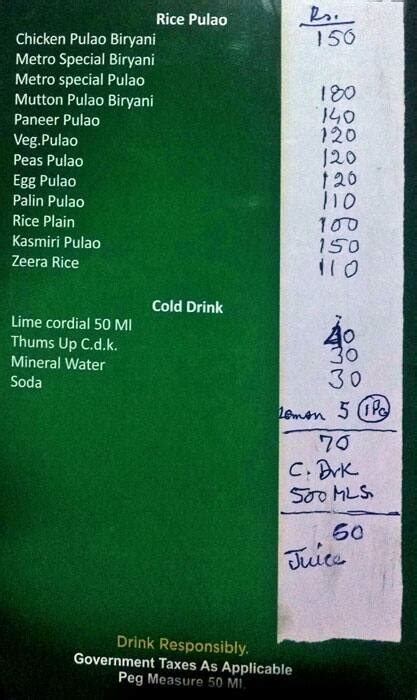 Rice Pulao Rs.
Chicken Pulao Biryani 150
Metro Special Biryani
Metro special Pulao
Mutton Pulao Biryani 180
Paneer Pulao 140
Veg.Pulao 120
Peas Pulao 120
Egg Pulao 120
Palin Pulao 110
Rice Plain 100
Kasmiri Pulao 150
Zeera Rice 110
Cold Drink
Lime cordial 50 Ml
Thums Up C.d.k. 40
Mineral Water 30
Soda 30
Lemon 5 1Pc
70
C. Drk
500 MLS.
60
Juice
Drink Responsibly.
Government Taxes As Applicable
Peg Measure 50 Ml.